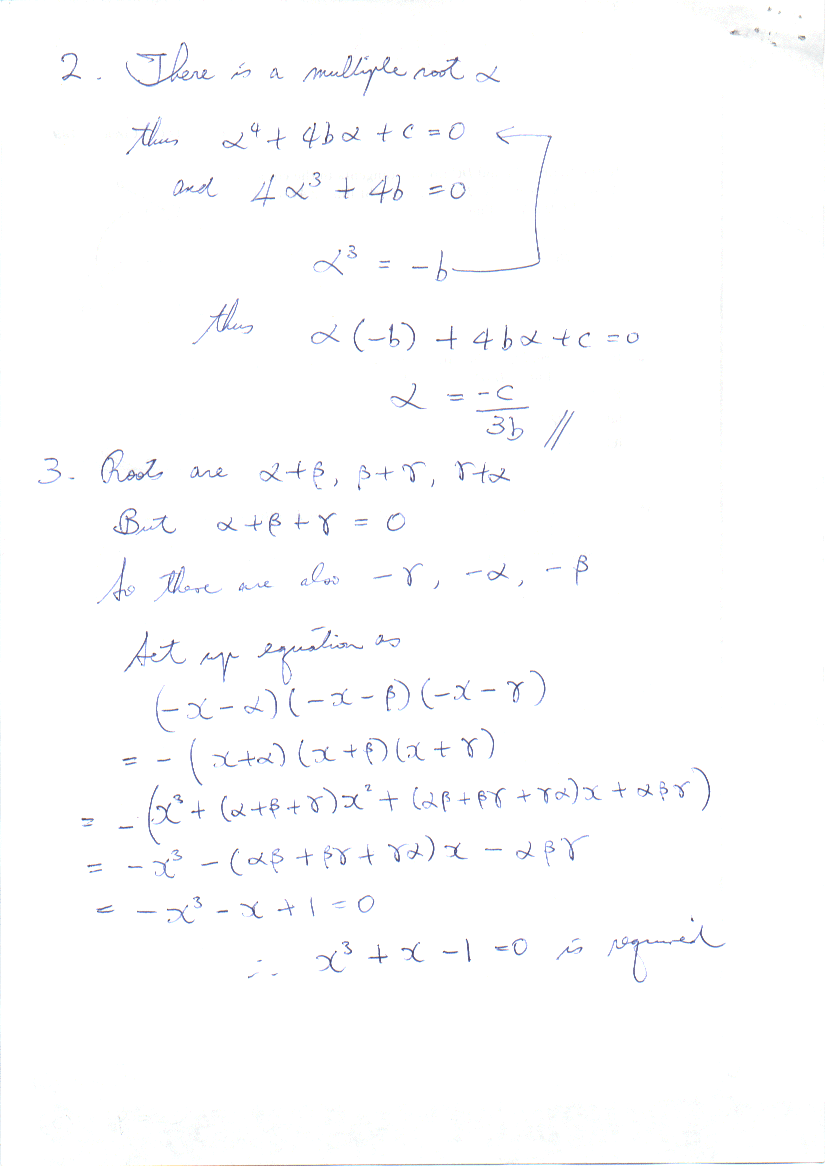 2. There is a multiple root α
thus α⁴ + 4bα + c = 0
and 4α³ + 4b = 0
α³ = -b
thus α(-b) + 4bα + c = 0
α = -c/3b //
3. Roots are α+β, β+γ, γ+α
But α+β+γ = 0
So there are also -γ, -α, -β
Set up equation as
(-x-α)(-x-β)(-x-γ)
= -(x+α)(x+β)(x+γ)
= -(x³ + (α+β+γ)x² + (αβ+βγ+γα)x + αβγ)
= -x³ - (αβ+βγ+γα)x - αβγ
= -x³ - x + 1 = 0
∴ x³ + x - 1 = 0 is required